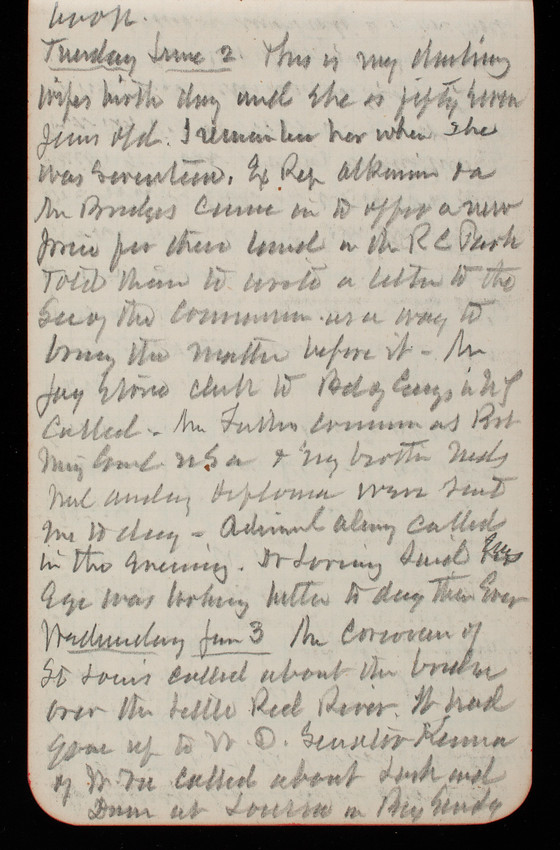 book.
Tuesday June 2. This is my darling
wifes birth day and she is fifty seven
years old. I remember her when she
was seventeen. Ex Rep Atkinson &
Mr Bridges came in to offer a new
price for their land in the R C Park
Told them to write a letter to the
Secy of the Commission as a way to
bring the matter before it - Mr
Jay Stone clerk to Bd of Engs in NY
called. Mr Father's commission as Brt
Brig Genl USA & my brother Neds
diploma were sent
me to day - Admiral called
in the evening. Dr Loring said his
eye was looking better to day than Ever
Wednesday June 3 Mr Corcoran of
St Louis called about the bridge
over the Little Red River. It had
gone up to W D. Senator Kenna
of W Va called about Lock and
Dam at Louisa on Big Sandy